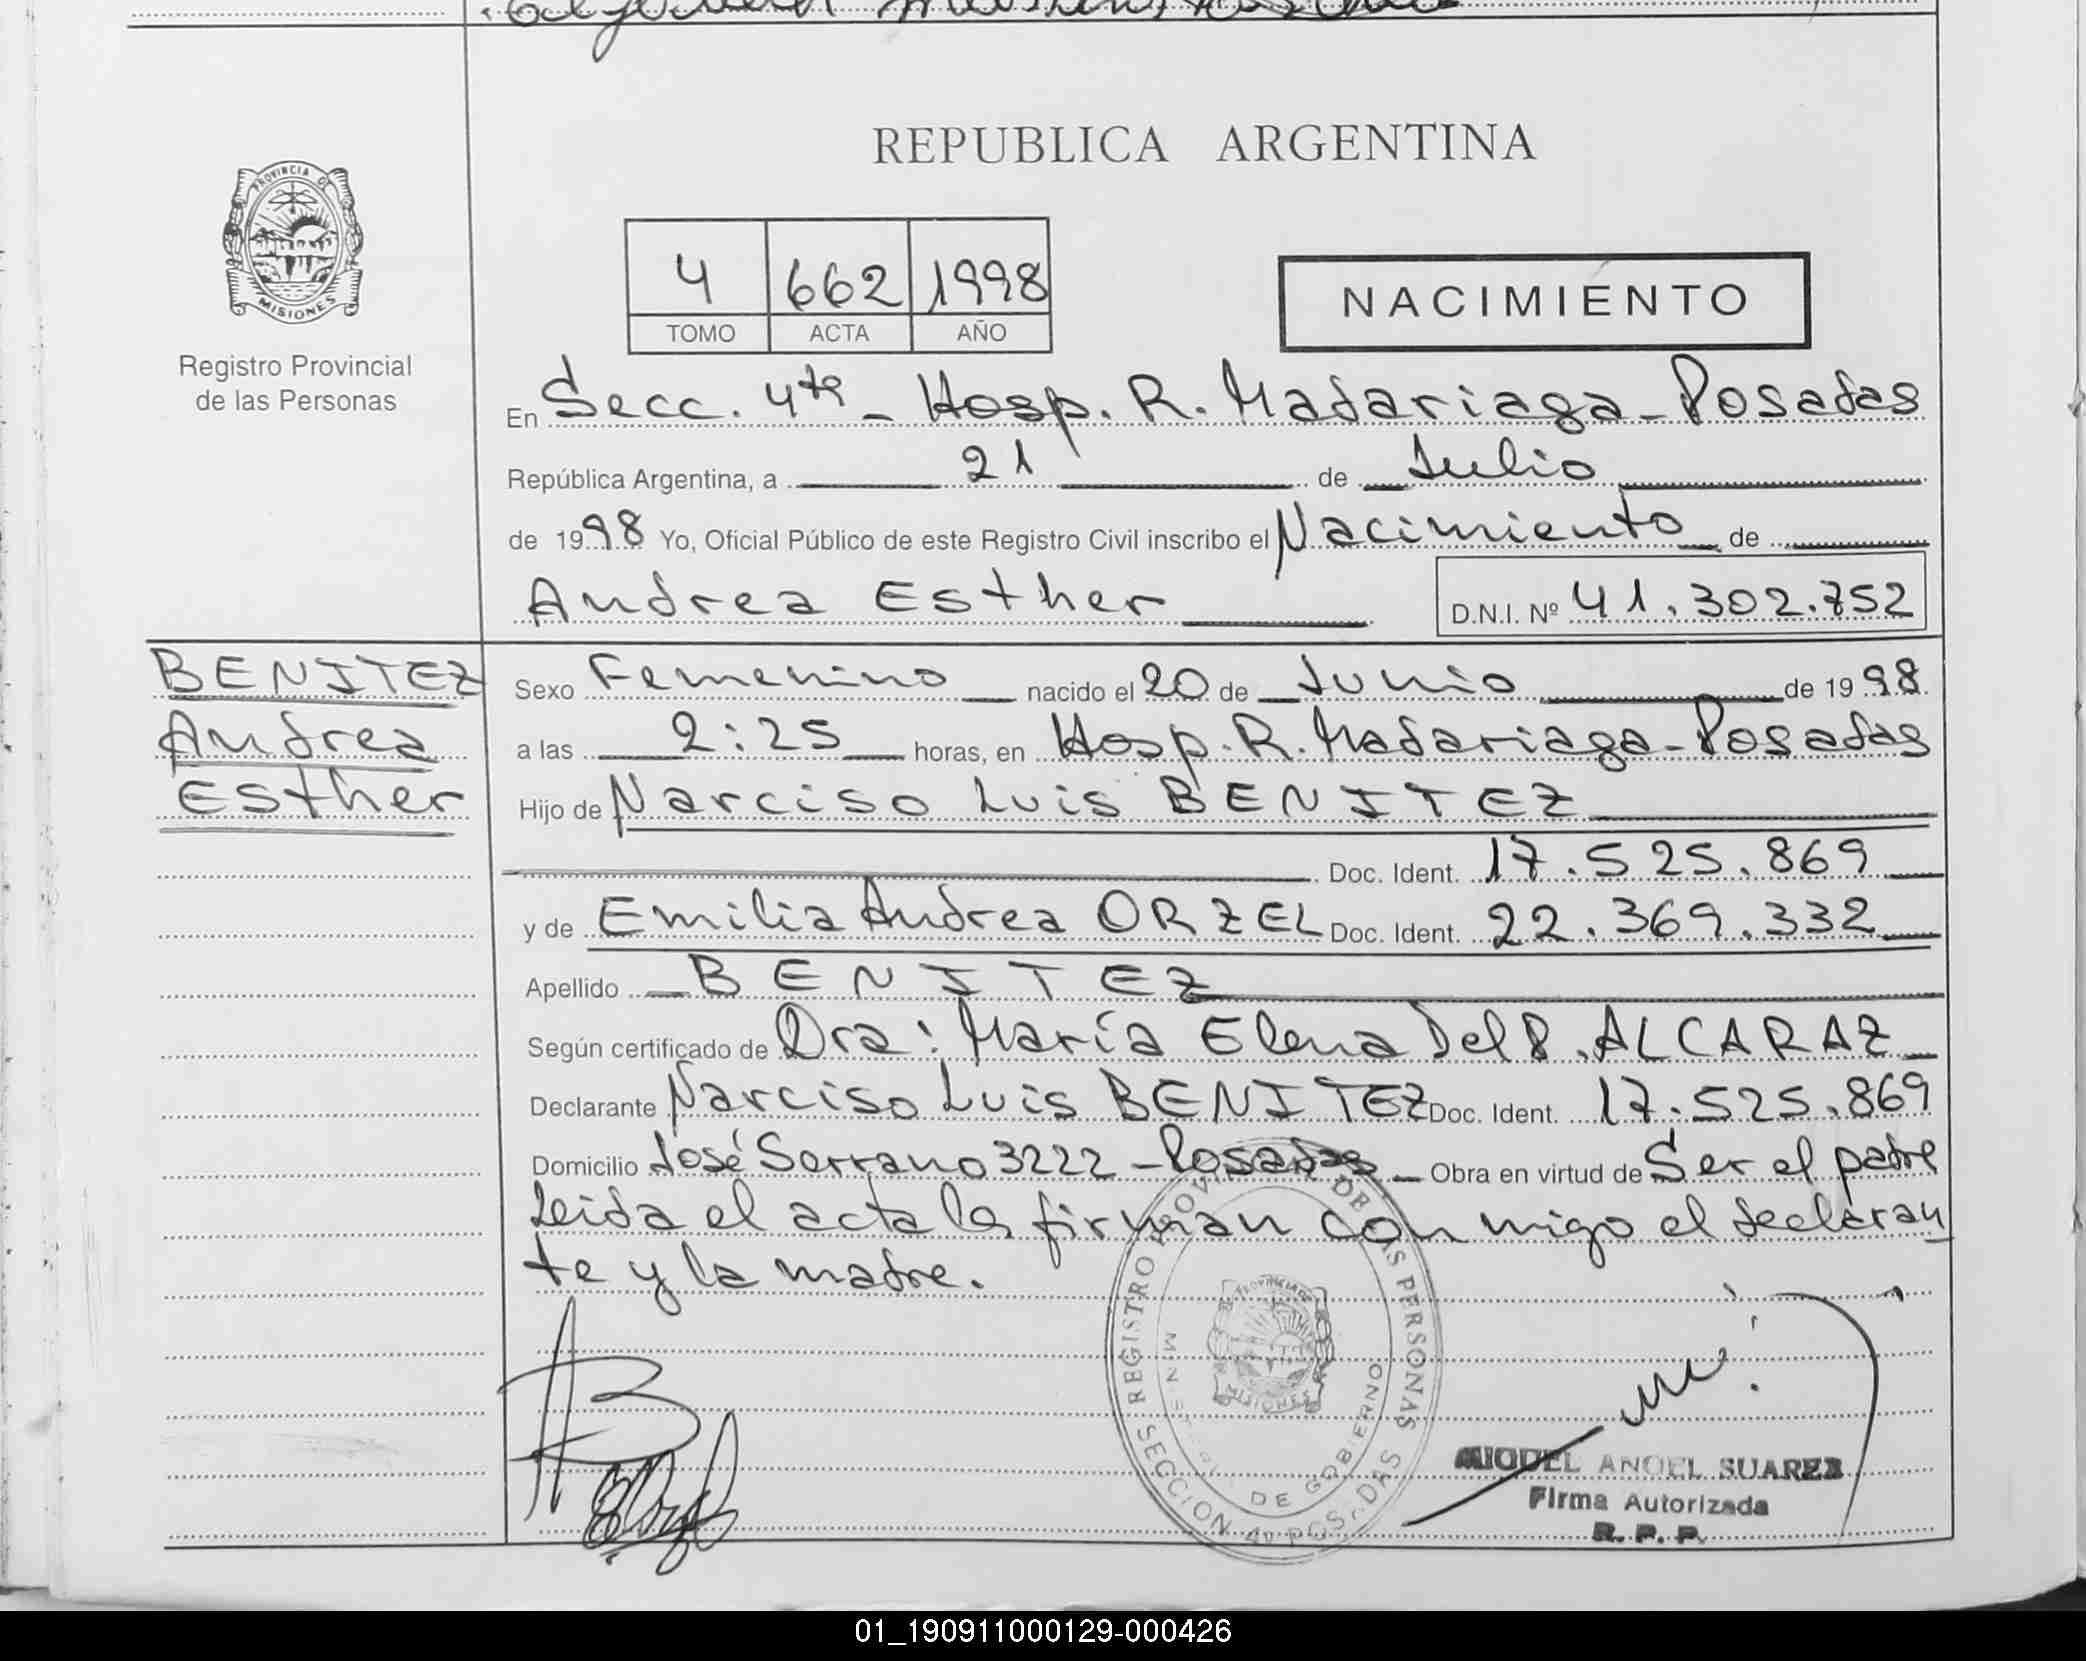 REPUBLICA ARGENTINA
PROVINCIA DE
MISIONES
Registro Provincial
de las Personas
4 662 1998
TOMO ACTA AÑO
NACIMIENTO
En Secc. 4ta - Hosp. R. Madariaga - Posadas
República Argentina, a 21 de Julio
de 1998 Yo, Oficial Público de este Registro Civil inscribo el Nacimiento de
Andrea Esther D.N.I. Nº 41.302.752
BENITEZ
Andrea
Esther
Sexo Femenino nacido el 20 de Junio de 1998
a las 2:25 horas, en Hosp. R. Madariaga - Posadas
Hijo de Narciso Luis BENITEZ
Doc. Ident. 17.525.869
y de Emilia Andrea ORZEL Doc. Ident. 22.369.332
Apellido BENITEZ
Según certificado de Dra: María Elena Del P. ALCARAZ
Declarante Narciso Luis BENITEZ Doc. Ident. 17.525.869
Domicilio José Serrano 3222 - Posadas Obra en virtud de Ser el padre
Leida el acta la firman con migo el declaran
te y la madre.
REGISTRO PROVINCIAL DE LAS PERSONAS
DE GOBIERNO
MISIONES
SECCION 4º POSADAS
MIGUEL ANGEL SUAREZ
Firma Autorizada
R. P. P.
01_190911000129-000426